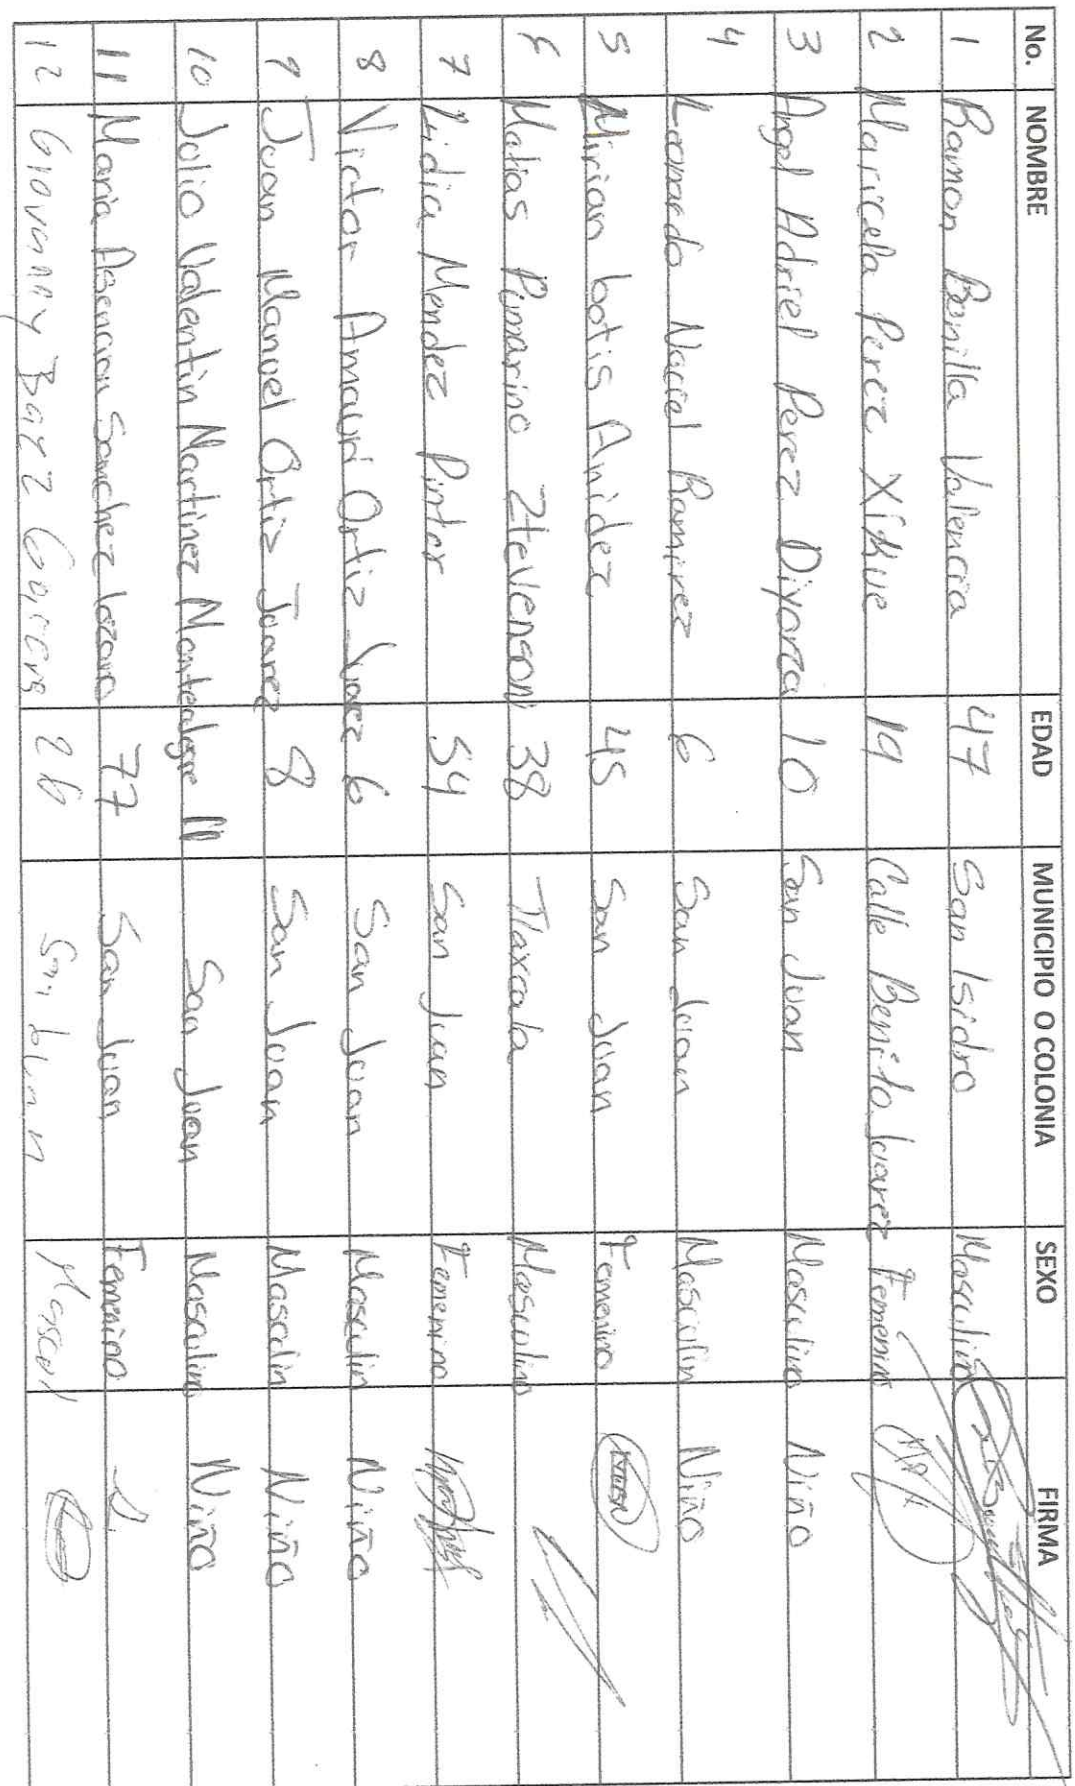 No. NOMBRE EDAD MUNICIPIO O COLONIA SEXO FIRMA
1 Ramon Bonilla Valencia 47 San Isidro Masculin
2 Maricela Perez 19 Calle Benito Juarez Femenino
3 Angel Adriel Perez Diyorza 10 San Juan Masculino Niño
4 Leonardo Naciel Ramirez 6 San Juan Masculin Niño
5 Mirian botis Anidez 45 San Juan Femenino
6 Matias Pumarino Ztevenson 38 Tlaxcala Masculino
7 Lidia Mendez Pintor 54 San Juan Femenino
8 Victor Amauri Ortiz Juarez 6 San Juan Masculin Niño
9 Juan Manuel Ortiz Juarez 8 San Juan Masculin Niño
10 Julio Valentin Martinez Montealegre 11 San Juan Masculino Niño
11 Maria Asencion Sanchez Lozano 77 San Juan Femenino
12 Giovanny Baez 26 San Juan Mascul